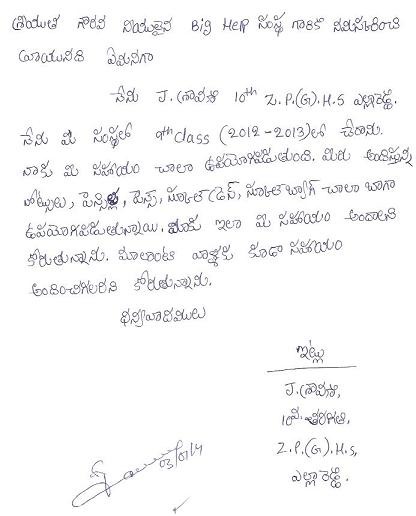 శ్రీయుత గౌరవ నీయులైన Big Help సంస్థ గారికి నమస్కరించి
వ్రాయునది ఏమనగా
నేను J. శ్రావణి 10th Z.P.(G).H.S ఎల్లారెడ్డి.
నేను మీ సంస్థలో 9th class (2012-2013)లో చేరాను.
నాకు మీ సహాయం చాలా ఉపయోగపడుతుంది. మీరు అందిస్తున్న
నోట్సులు, పెన్సిల్, పెన్స, స్కూల్ డ్రెస్, స్కూల్ బ్యాగ్ చాలా బాగా
ఉపయోగపడుతున్నాయి. మాకు ఇలా మీ సహాయం అందాలని
కోరుతున్నాను. మాలాంటి వాళ్ళకు కూడా సహాయం
అందించగలరని కోరుతున్నాను.
ధన్యవాదములు
ఇట్లు
J. శ్రావణి,
10వ. తరగతి,
Z.P.(G).H.S,
ఎల్లారెడ్డి.
03/01/14